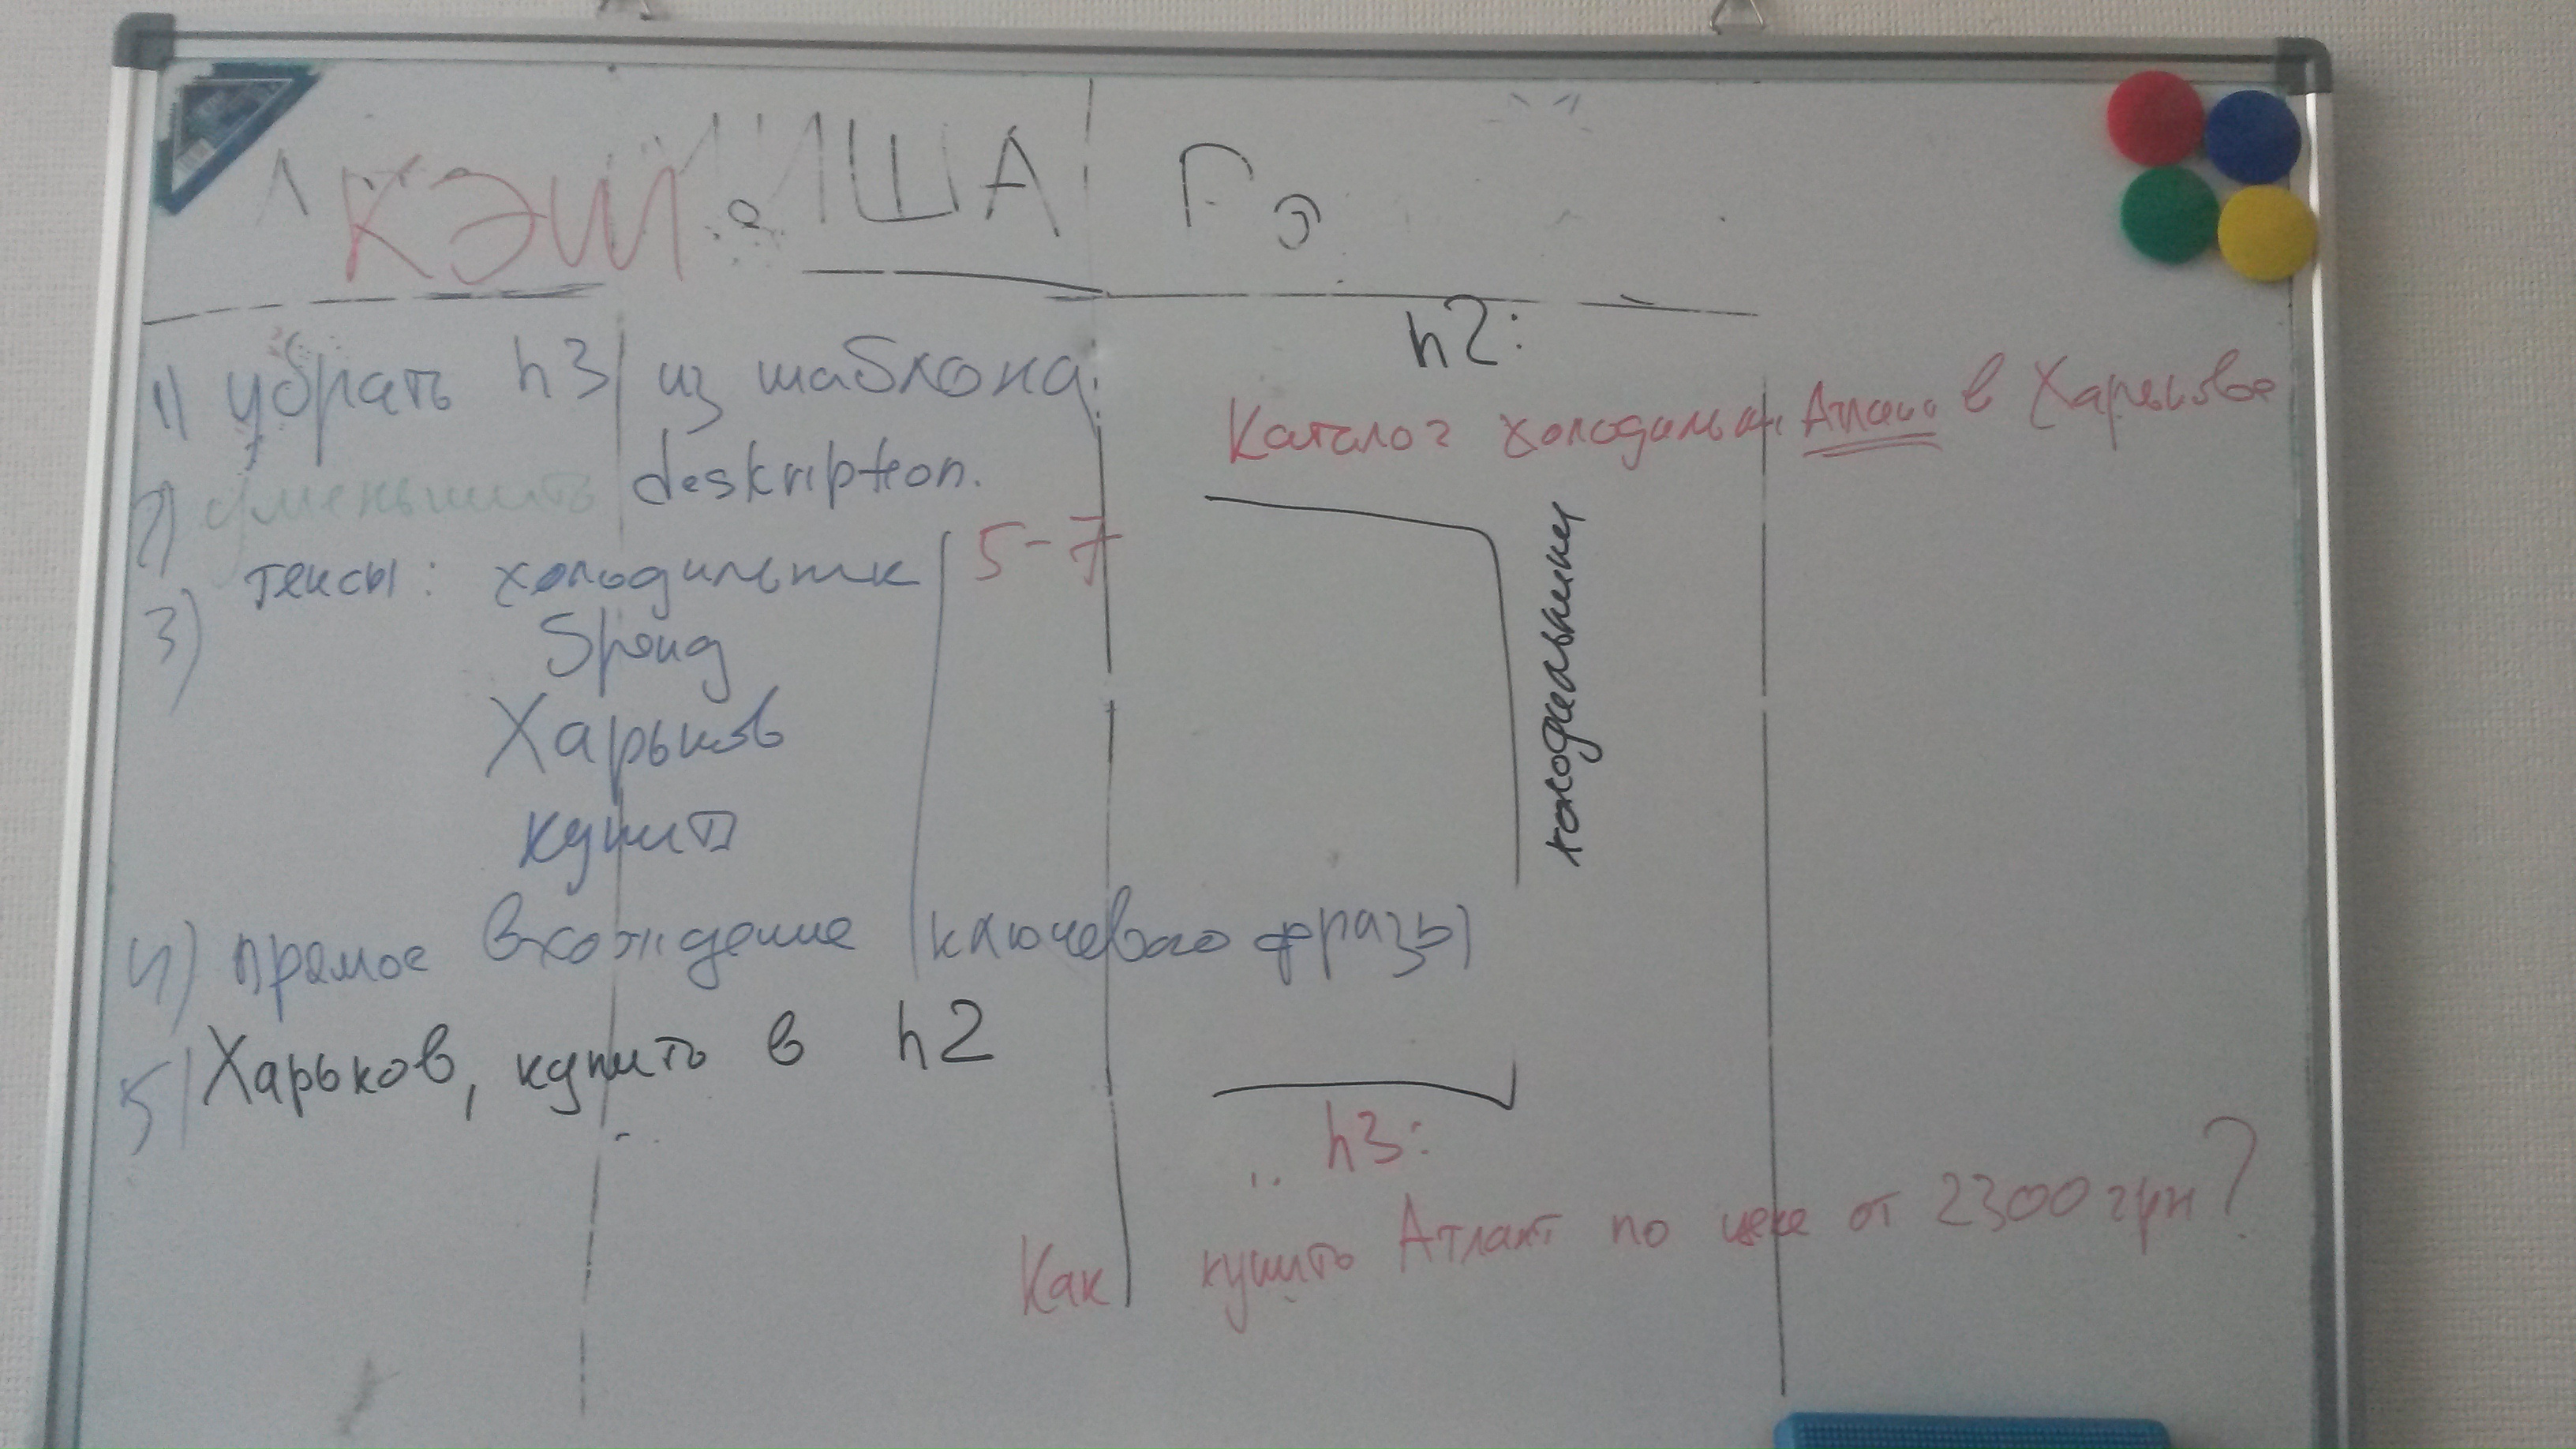 кэш
ША
1) убрать h3 из шаблона.
2) уменьшить deskription.
3) тексы: холодильник 5-7
Spенд
Харьков
купить
4) прямое вхождение ключевого фразы
5) Харьков, купить в h2
h2:
Каталог холодильн. Атлант в Харькове
холодильники
h3:
Как купить Атлант по цене от 2300 грн?